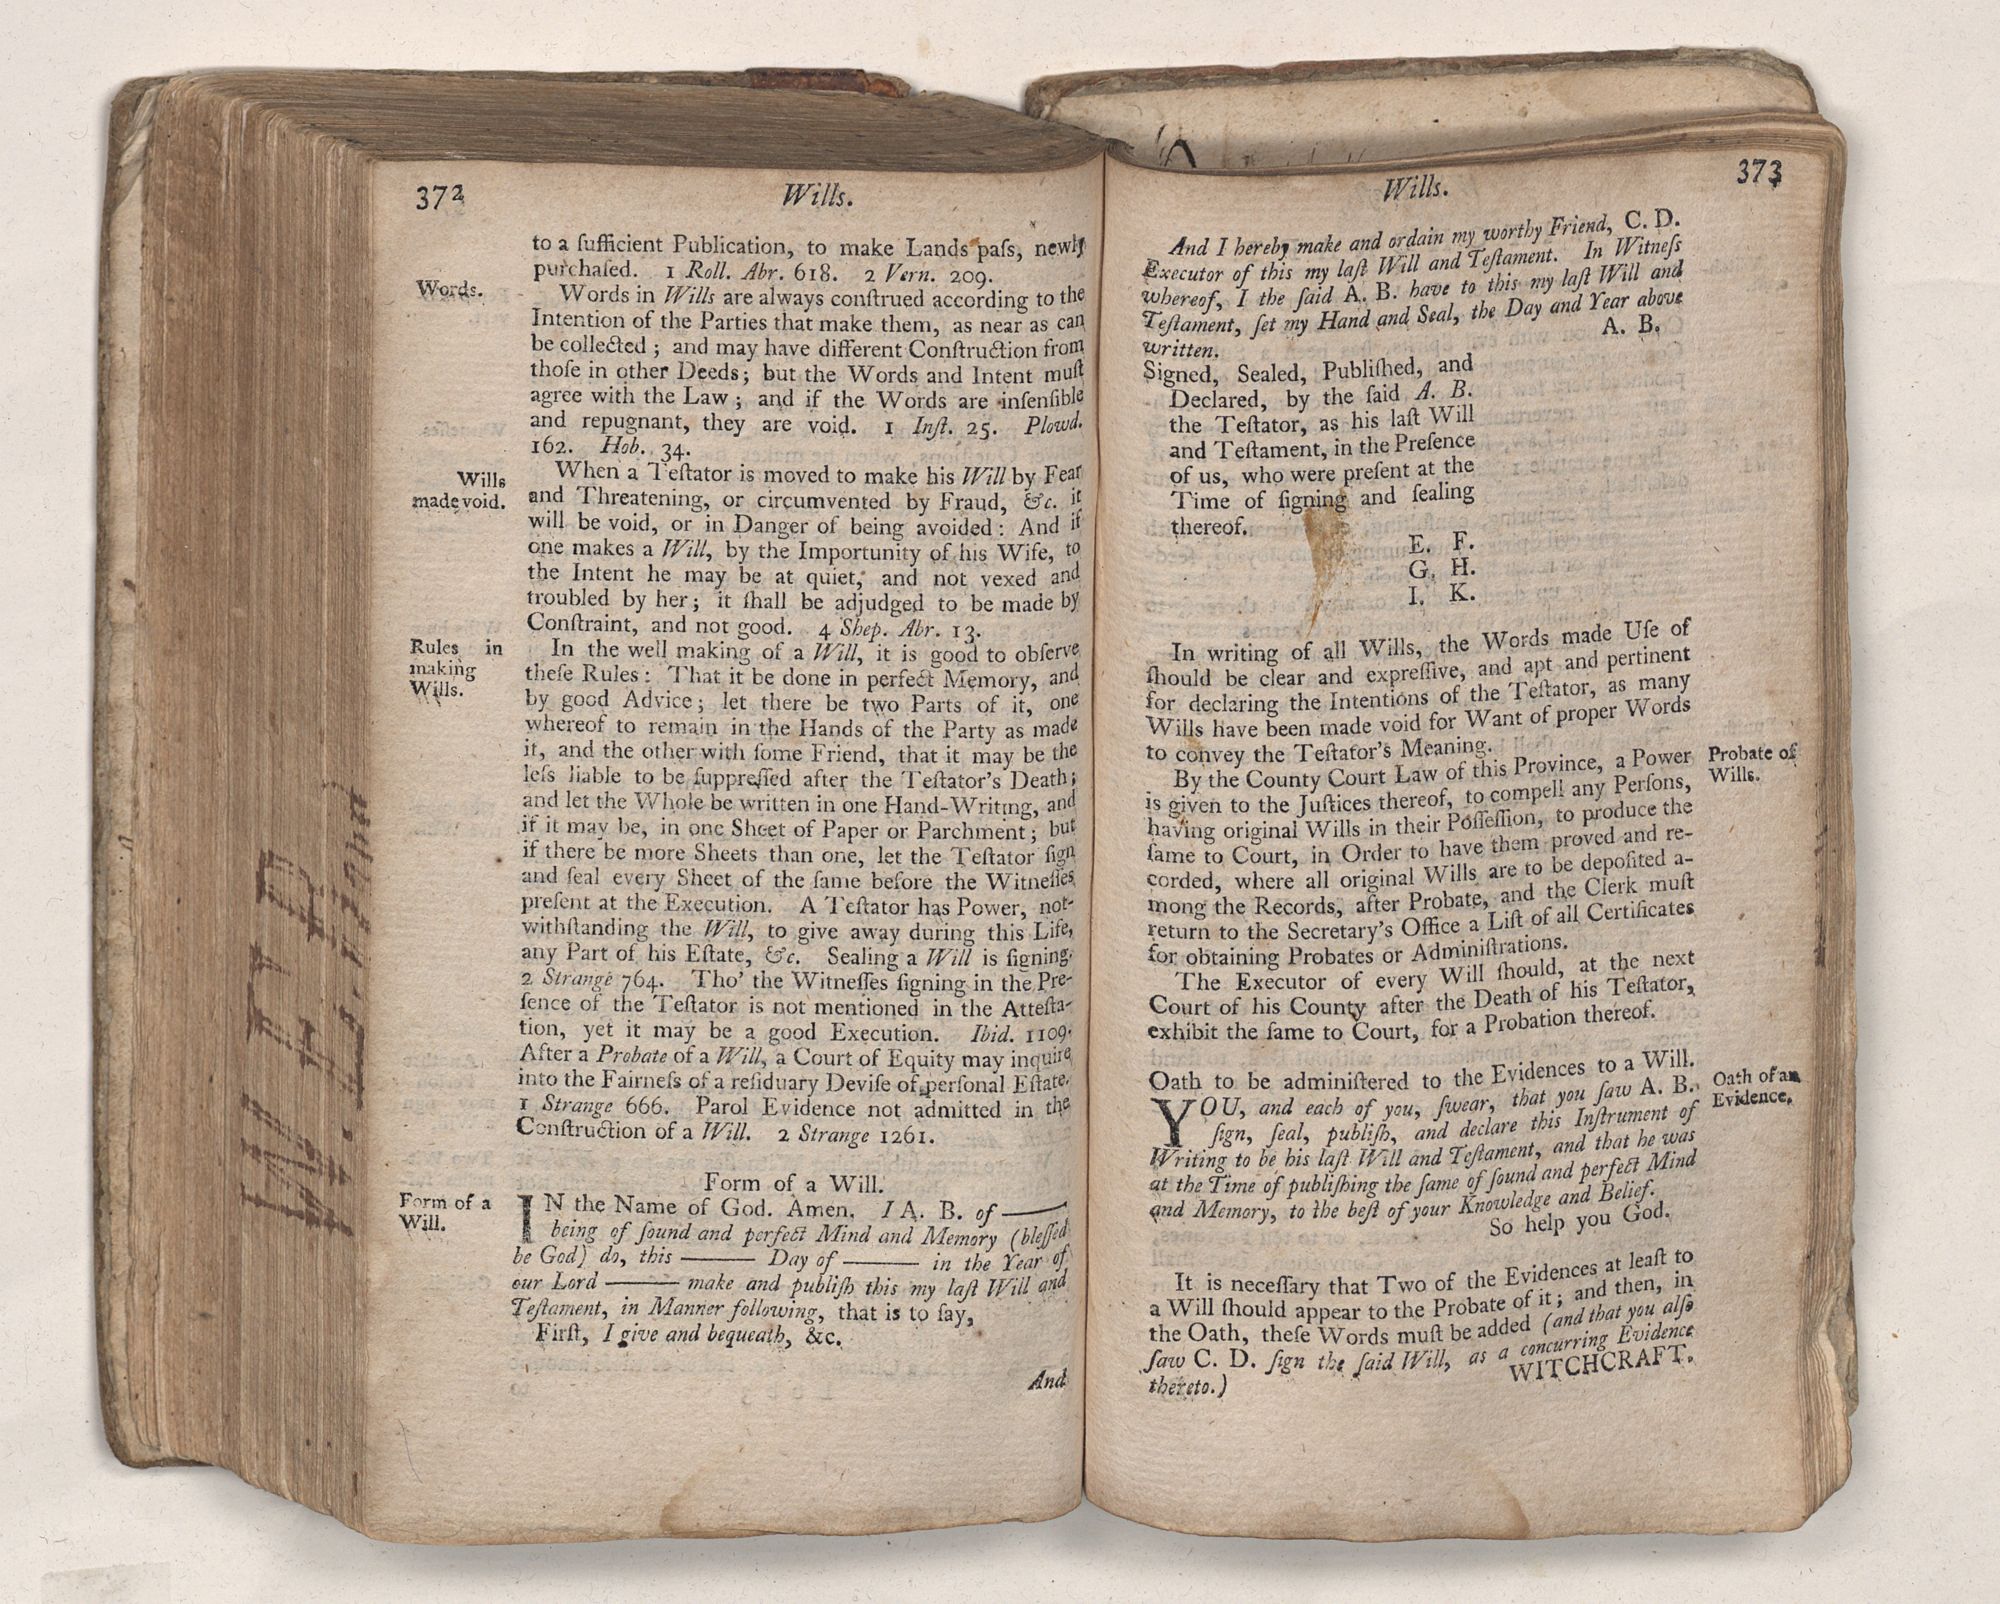 372
Wills.
to a ſufficient Publication, to make Lands paſs, newly
purchaſed. 1 Roll. Abr. 618. 2 Vern. 209.
Words.
Words in Wills are always conſtrued according to the
Intention of the Parties that make them, as near as can
be collected; and may have different Conſtruction from
thoſe in other Deeds; but the Words and Intent muſt
agree with the Law; and if the Words are inſenſible
and repugnant, they are void. 1 Inſt. 25. Plowd.
162. Hob. 34.
Wills
made void.
When a Teſtator is moved to make his Will by Fear
and Threatening, or circumvented by Fraud, &c. it
will be void, or in Danger of being avoided: And if
one makes a Will, by the Importunity of his Wife, to
the Intent he may be at quiet, and not vexed and
troubled by her; it ſhall be adjudged to be made by
Conſtraint, and not good. 4 Shep. Abr. 13.
Rules in
making
Wills.
In the well making of a Will, it is good to obſerve
theſe Rules: That it be done in perfect Memory, and
by good Advice; let there be two Parts of it, one
whereof to remain in the Hands of the Party as made
it, and the other with ſome Friend, that it may be the
leſs liable to be ſuppreſſed after the Teſtator's Death;
and let the Whole be written in one Hand-Writing, and
if it may be, in one Sheet of Paper or Parchment; but
if there be more Sheets than one, let the Teſtator ſign
and ſeal every Sheet of the ſame before the Witneſſes
preſent at the Execution. A Teſtator has Power, not-
withſtanding the Will, to give away during this Life,
any Part of his Eſtate, &c. Sealing a Will is ſigning.
2 Strange 764. Tho' the Witneſſes ſigning in the Pre-
ſence of the Teſtator is not mentioned in the Atteſta-
tion, yet it may be a good Execution. Ibid. 1109.
After a Probate of a Will, a Court of Equity may inquire
into the Fairneſs of a reſiduary Deviſe of perſonal Eſtate.
1 Strange 666. Parol Evidence not admitted in the
Conſtruction of a Will. 2 Strange 1261.
Form of a Will.
Form of a
Will.
IN the Name of God. Amen. I A. B. of ——
being of ſound and perfect Mind and Memory (bleſſed
be God) do, this —— Day of —— in the Year of
our Lord —— make and publiſh this my laſt Will and
Teſtament, in Manner following, that is to ſay,
Firſt, I give and bequeath, &c.
And
Wills.
373
And I hereby make and ordain my worthy Friend, C. D.
Executor of this my laſt Will and Teſtament. In Witneſs
whereof, I the ſaid A. B. have to this my laſt Will and
Teſtament, ſet my Hand and Seal, the Day and Year above
written.
A. B.
Signed, Sealed, Publiſhed, and
Declared, by the ſaid A. B.
the Teſtator, as his laſt Will
and Teſtament, in the Preſence
of us, who were preſent at the
Time of ſigning and ſealing
thereof.
E. F.
G. H.
I. K.
In writing of all Wills, the Words made Uſe of
ſhould be clear and expreſſive, and apt and pertinent
for declaring the Intentions of the Teſtator, as many
Wills have been made void for Want of proper Words
to convey the Teſtator's Meaning.
By the County Court Law of this Province, a Power
is given to the Juſtices thereof, to compell any Perſons,
having original Wills in their Poſſeſſion, to produce the
ſame to Court, in Order to have them proved and re-
corded, where all original Wills are to be depoſited a-
mong the Records, after Probate, and the Clerk muſt
return to the Secretary's Office a Liſt of all Certificates
for obtaining Probates or Adminiſtrations.
Probate of
Wills.
The Executor of every Will ſhould, at the next
Court of his County after the Death of his Teſtator,
exhibit the ſame to Court, for a Probation thereof.
Oath to be adminiſtered to the Evidences to a Will.
Oath of an
Evidence.
YOU, and each of you, ſwear, that you ſaw A. B.
ſign, ſeal, publiſh, and declare this Inſtrument of
Writing to be his laſt Will and Teſtament, and that he was
at the Time of publiſhing the ſame of ſound and perfect Mind
and Memory, to the beſt of your Knowledge and Belief.
So help you God.
It is neceſſary that Two of the Evidences at leaſt to
a Will ſhould appear to the Probate of it; and then, in
the Oath, theſe Words muſt be added (and that you alſo
ſaw C. D. ſign the ſaid Will, as a concurring Evidence
thereto.)
WITCHCRAFT.